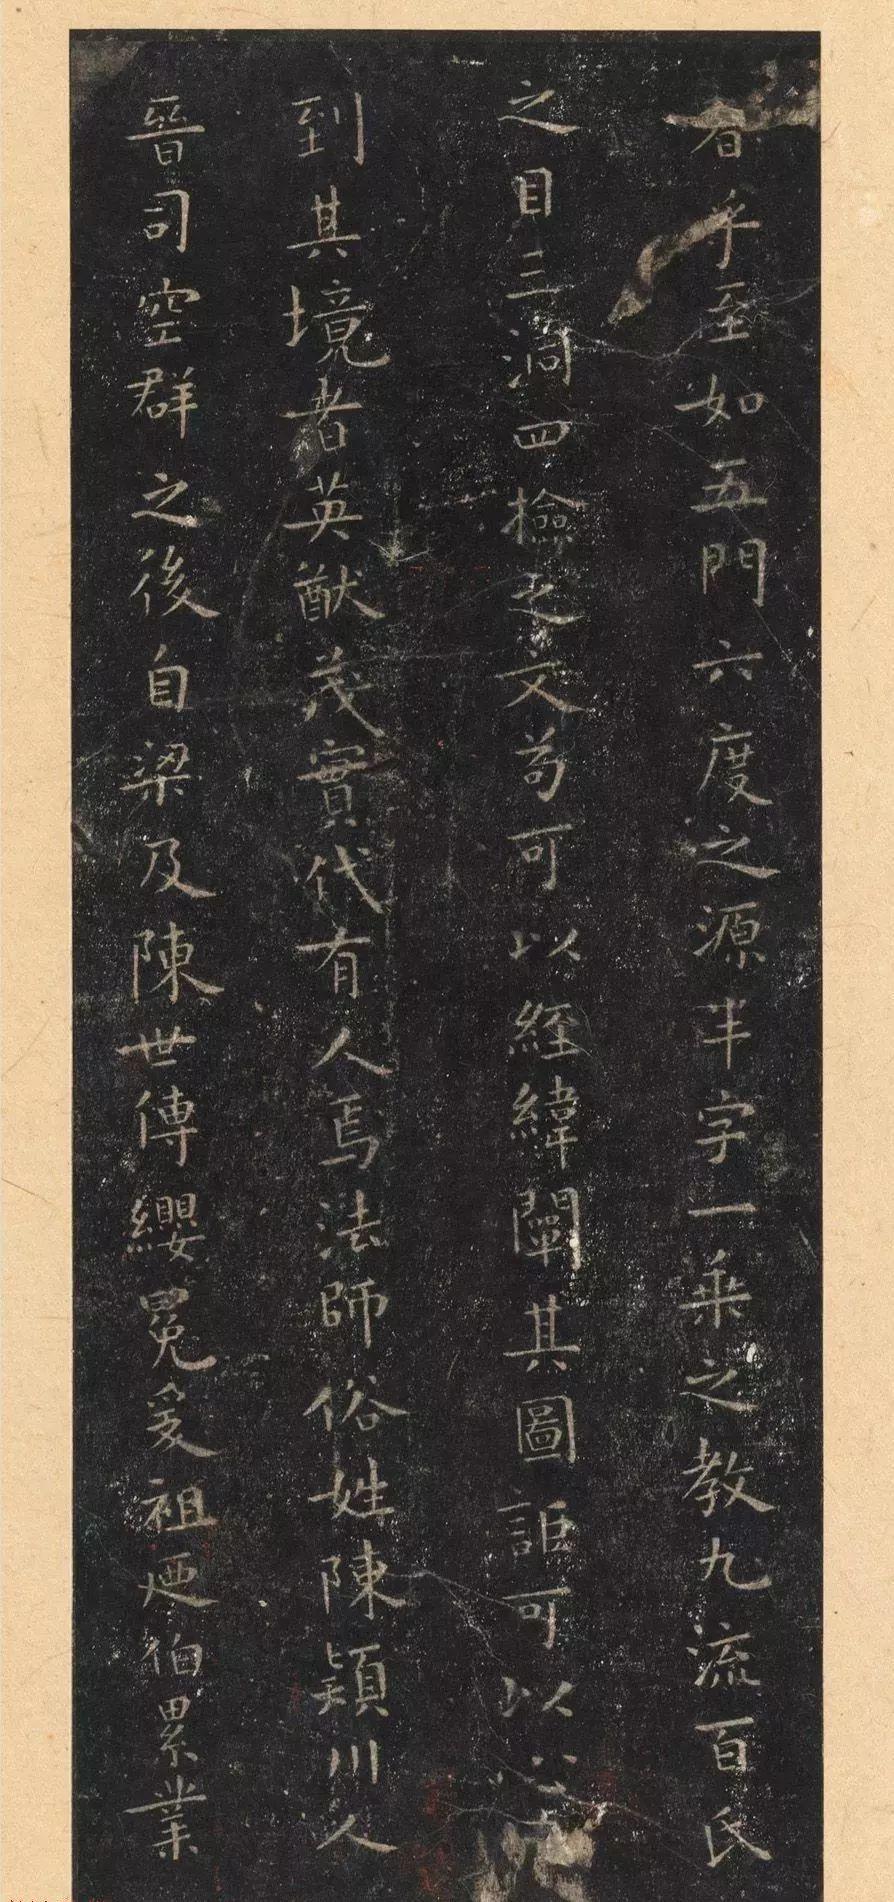 者乎至如五門六度之源半字一乘之教九流百氏
之目三洞四檢之文苟可以經緯闡其圖詎可以心
到其境者英猷茂實代有人焉法師俗姓陳潁川人
晉司空群之後自梁及陳世傳纓冕爰祖迺伯累業